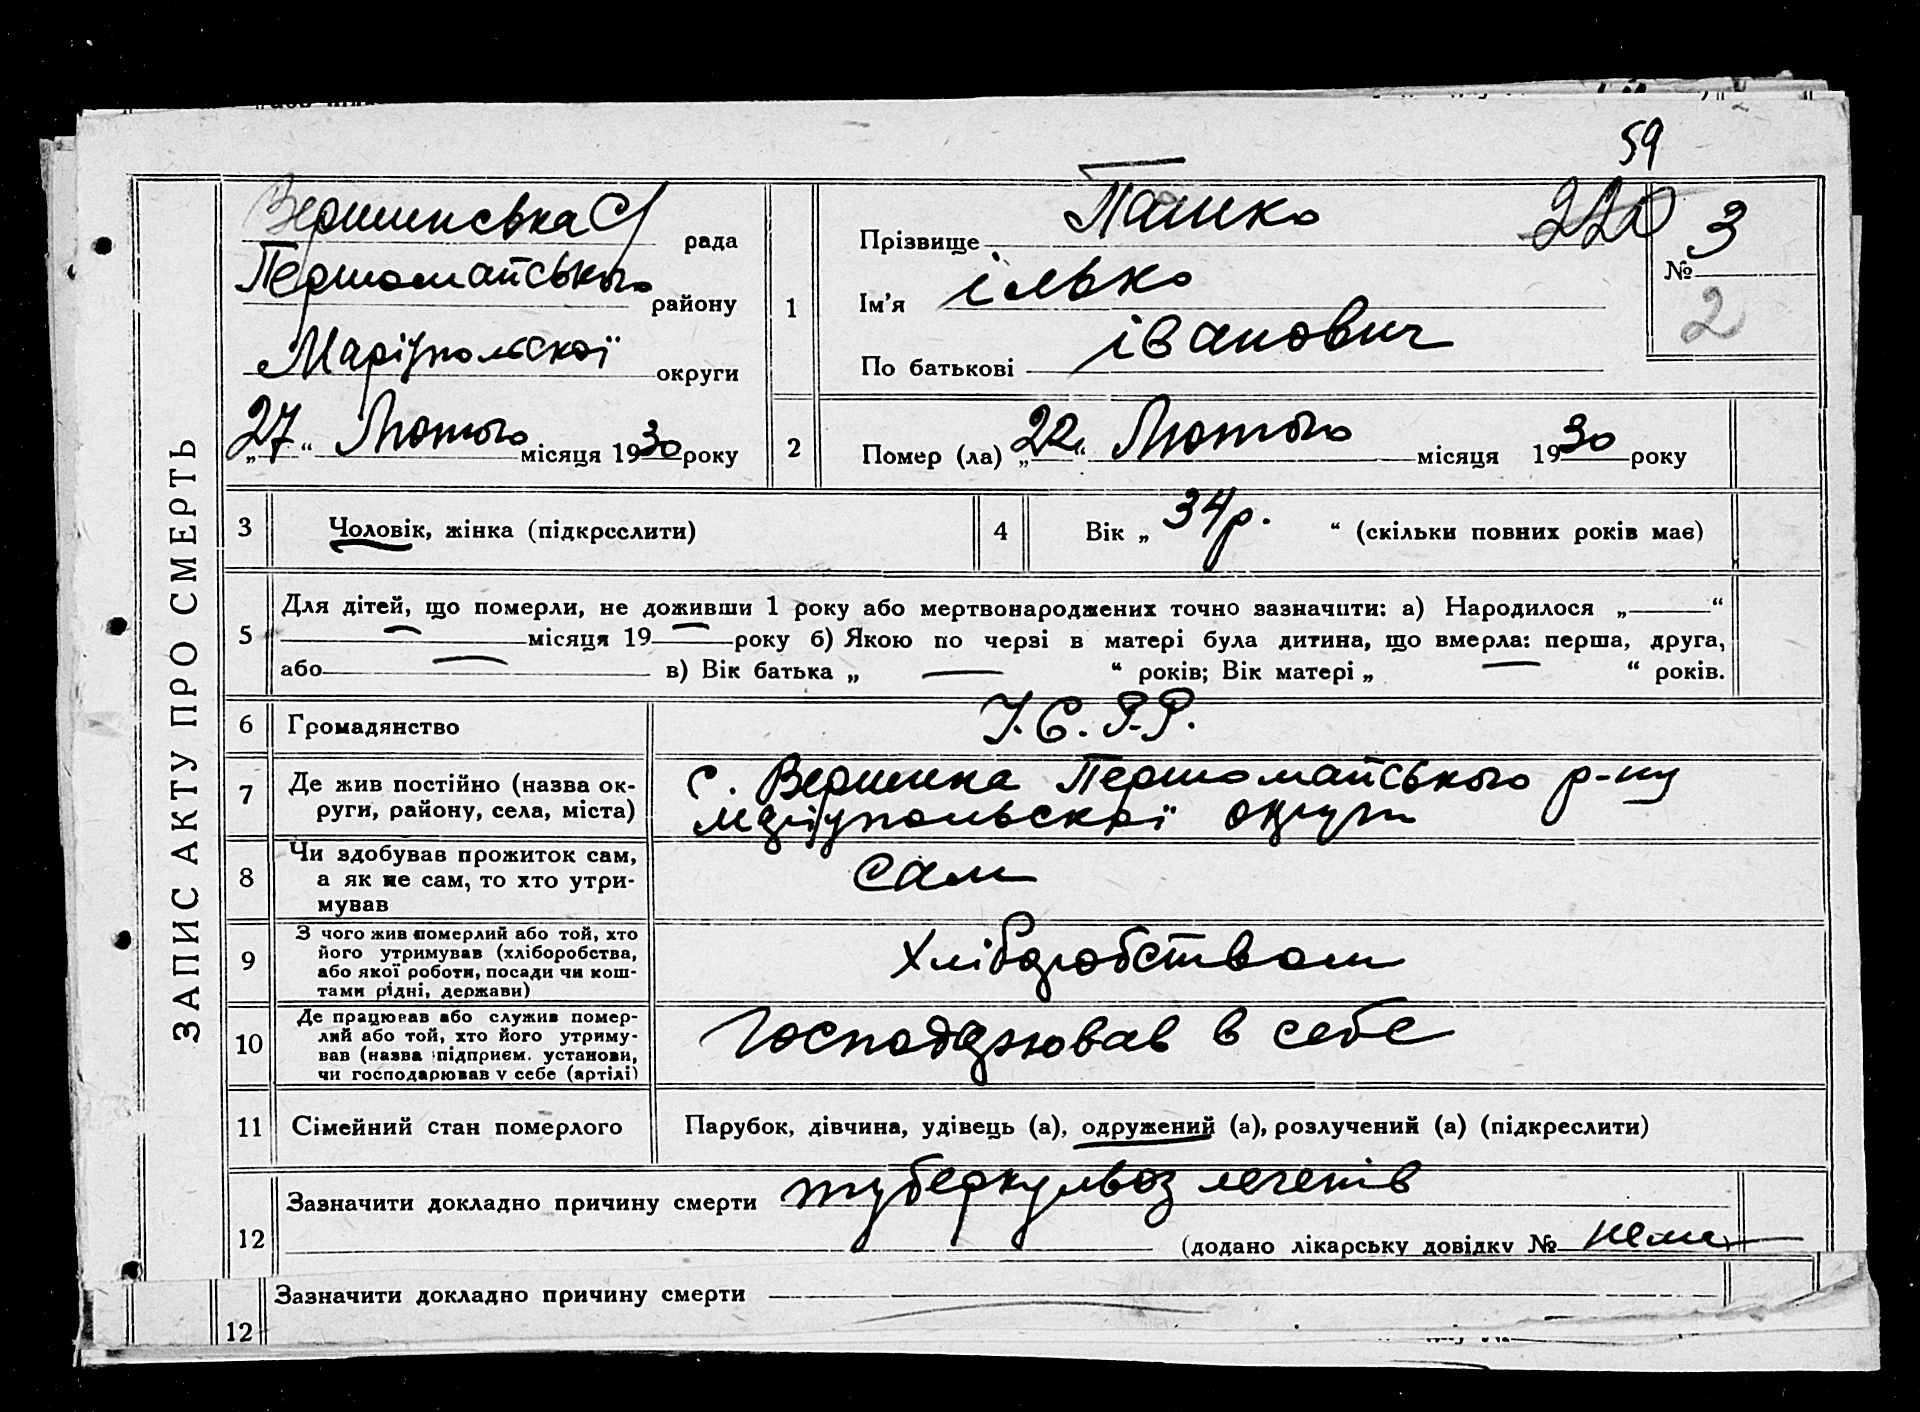 59
Вершинська С/ рада
Першомайського району
Маріупольскої округи
„27“ Лютого місяця 1930 року
1
Прізвище Пашко
220
№ 3
2
Ім'я ілько
По батькові іванович
2
Помер (ла) „22“ Лютого місяця 1930 року
ЗАПИС АКТУ ПРО СМЕРТЬ
3 Чоловік, жінка (підкреслити)
4 Вік „ 34 р. “ (скільки повних років має)
5
Для дітей, що померли, не доживши 1 року або мертвонароджених точно зазначити: а) Народилося „ “
місяця 19 року б) Якою по черзі в матері була дитина, що вмерла: перша, друга,
або в) Вік батька „ “ років; Вік матері „ “ років.
6 Громадянство У.С.Р.Р.
7 Де жив постійно (назва ок-
руги, району, села, міста)
с. Вершина Першомайського р-ну
маріупольскої округи
8 Чи здобував прожиток сам,
а як не сам, то хто утри-
мував
сам
9 З чого жив померлий або той, хто
його утримував (хліборобства,
або якої роботи, посади чи кош-
тами рідні, держави)
Хліборобством
10 Де працював або служив помер-
лий або той, хто його утриму-
вав (назва підприєм. установи,
чи господарював у себе (артілі)
Господарював в себе
11 Сімейний стан померлого Парубок, дівчина, удівець (а), одружений (а), розлучений (а) (підкреслити)
12
Зазначити докладно причину смерти туберкульоз легенів
(додано лікарську довідку № нема
Зазначити докладно причину смерти
12